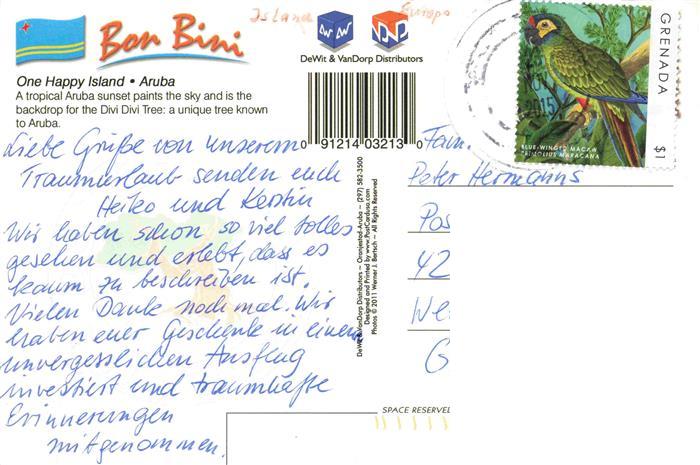 Island Europa
Bon Bini
DeWit & VanDorp Distributors
One Happy Island • Aruba
A tropical Aruba sunset paints the sky and is the
backdrop for the Divi Divi Tree: a unique tree known
to Aruba.
0 91214 03213 0
GRENADA
$1
BLUE-WINGED MACAW
PRIMOLIUS MARACANA
NOV
2015
Liebe Grüße von unserem
Traumurlaub senden euch
Heiko und Kerstin
Wir haben schon so viel tolles
gesehen und erlebt, dass es
kaum zu beschreiben ist.
Vielen Dank nochmal. Wir
haben euer Geschenk in einem
unvergesslichen Ausflug
investiert und traumhafte
Erinnerungen
mitgenommen.
DeWit & VanDorp Distributors ~ Oranjestad-Aruba ~ (297) 582-3500
Designed and Printed by www.PostCardusa.com
Photos © 2011 Werner J. Bertsch ~ All Rights Reserved
Fam.
Peter Hermanns
Pos
42
We
G
SPACE RESERVED